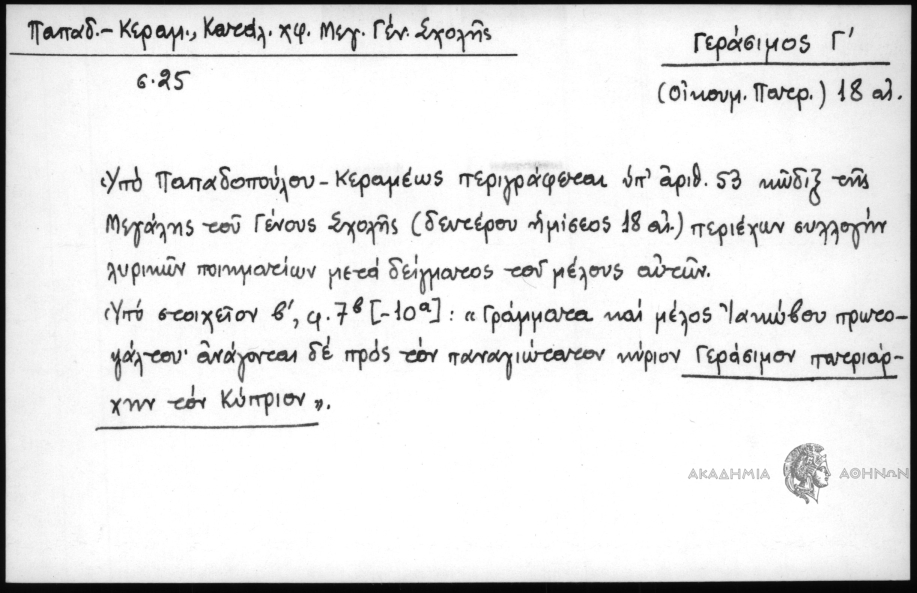 Παπαδ.-Κεραμ., Κατάλ. χφ. Μεγ. Γέν. Σχολῆς
σ. 25
Γεράσιμος Γ'
(Οἰκουμ. Πατρ.) 18 αἰ.
Ὑπό Παπαδοπούλου-Κεραμέως περιγράφεται ὑπ' ἀριθ. 53 κῶδιξ τῆς
Μεγάλης τοῦ Γένους Σχολῆς (δευτέρου ἡμίσεος 18 αἰ.) περιέχων συλλογήν
λυρικῶν ποιηματίων μετά δείγματος τοῦ μέλους αὐτῶν.
Ὑπό στοιχεῖον β', φ. 7β [-10α] : «Γράμματα καί μέλος Ἰακώβου πρωτο-
ψάλτου· ἀνάγονται δέ πρός τόν παναγιώτατον κύριον Γεράσιμον πατριάρ-
χην τόν Κύπριον».
ΑΚΑΔΗΜΙΑ ΑΘΗΝΩΝ